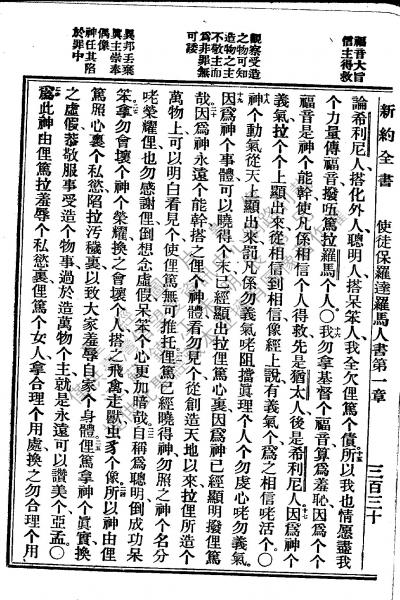 新約全書 使徒保羅達羅馬人書第一章 三百三十
福音大旨
信主得救
觀察受造
之物可知
造物之主
不敬主而
爲非罪無
可諉
異邦丟棄
眞主崇奉
偶像
神任其陷
於罪中
論希利尼人、搭化外人、聰明人、搭呆笨人、我全欠俚篤个債、所以我也情愿盡我
个力量傳福音撥唔篤拉羅馬个人〇我勿拿基督个福音算爲羞恥、因爲个个
福音是神个能幹、使凡係相信个人得救、先是猶太人、後是希利尼人、因爲神个
義氣、拉个上顯出來、從相信到相信、像經上說有義氣个、爲之相信咾活个、〇
神个動氣、從天上顯出來、罰凡係勿義氣咾阻擋眞理个人个勿虔心咾勿義氣、
因爲神个事體、可以曉得个末、已經顯出拉俚篤心裏、因爲神已經顯明撥俚篤
哉、因爲神永遠个能幹、搭之俚个神體、看勿見个、從創造天地以來、拉俚所造个
萬物上、可以明白看見个、使俚篤無可推托、俚篤已經曉得神、勿照之神个名分
咾榮耀俚、也勿感謝俚、倒想念虛假、呆笨个心、更加暗哉、自稱爲聰明、倒成功呆
笨、拿勿會壞个神个榮耀、換之會壞个人、搭之飛禽走獸虫豸个像、所以神由俚
篤照心裏个私慾、陷拉汚穢裏、以致大家羞辱自家个身體、俚篤拿神个眞實、換
之虛假、恭敬服事受造个物事、過於造萬物个主、就是永遠可以讚美个、亞孟、〇
爲此神由俚篤拉羞辱个私慾裏、俚篤个女人、拿合理个用處、換之勿合理个用